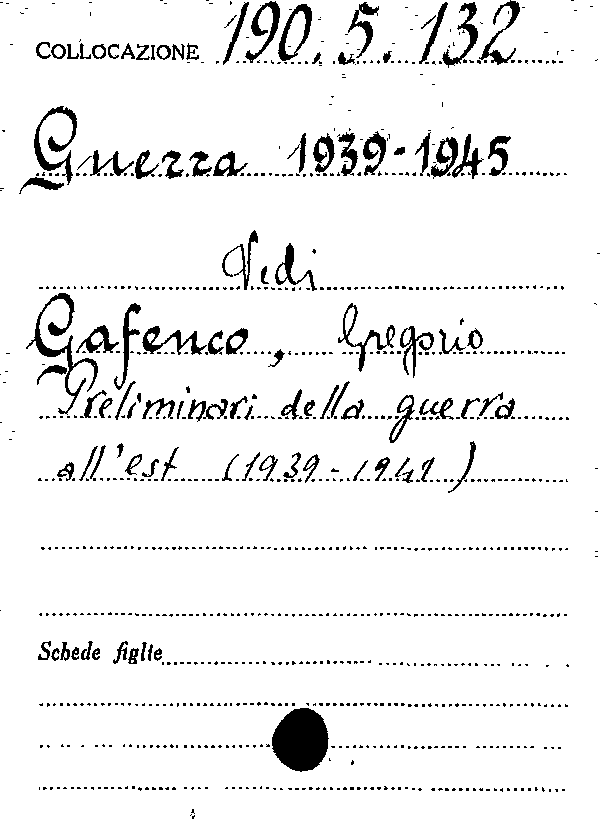 COLLOCAZIONE 190.5.132
Guerra 1939-1945
Vedi
Gafenco, Gregorio
Preliminari della guerra
all'est (1939-1941)
Schede figlie